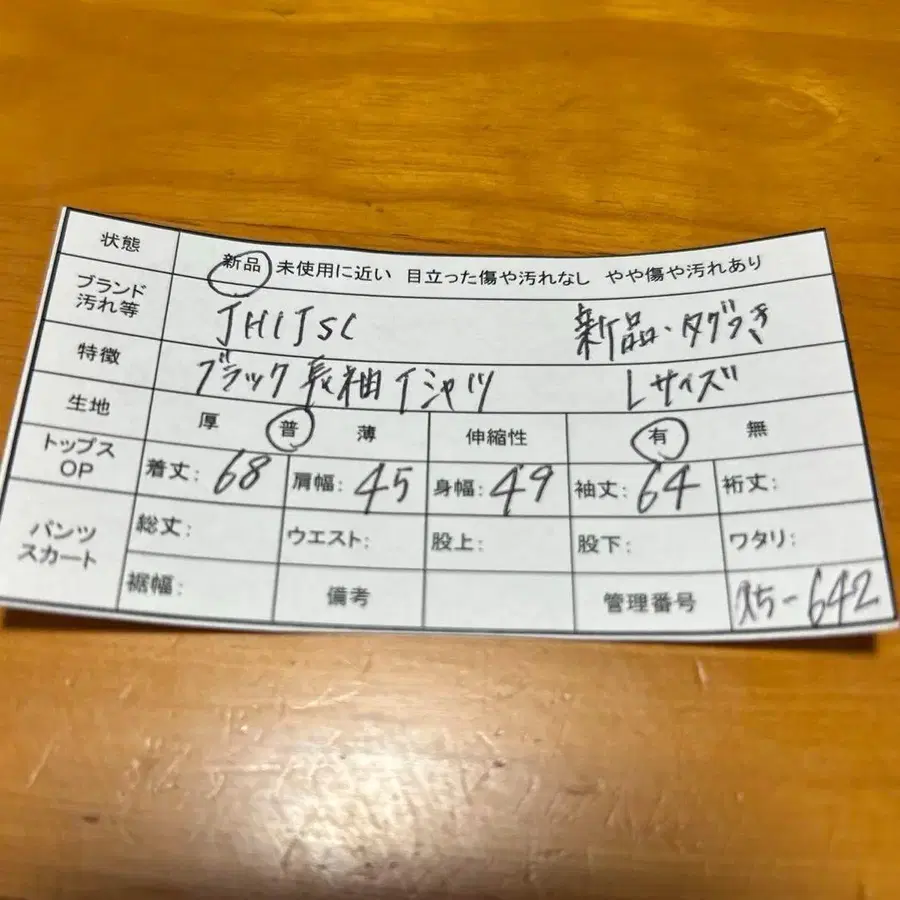 状態 新品 未使用に近い 目立った傷や汚れなし やや傷や汚れあり
ブランド
汚れ等 JHIJSC 新品・タグつき
特徴 ブラック 長袖 Tシャツ Lサイズ
生地 厚 普 薄 伸縮性 有 無
トップス
OP 着丈: 68 肩幅: 45 身幅: 49 袖丈: 64 裄丈:
パンツ
スカート 総丈: ウエスト: 股上: 股下: ワタリ:
裾幅: 備考 管理番号 -642